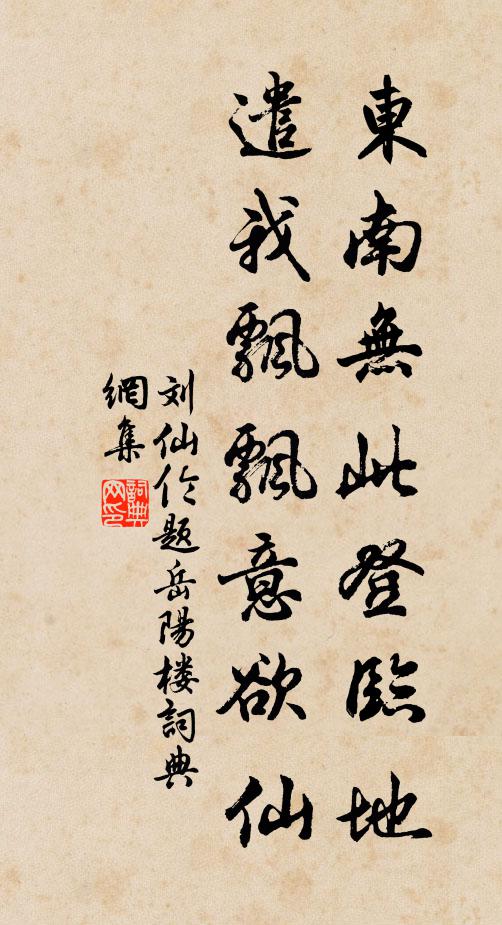 東南無此登臨地
遣我飄飄意欲仙
刘仙伦題岳陽楼詞典
網集
詞典网印